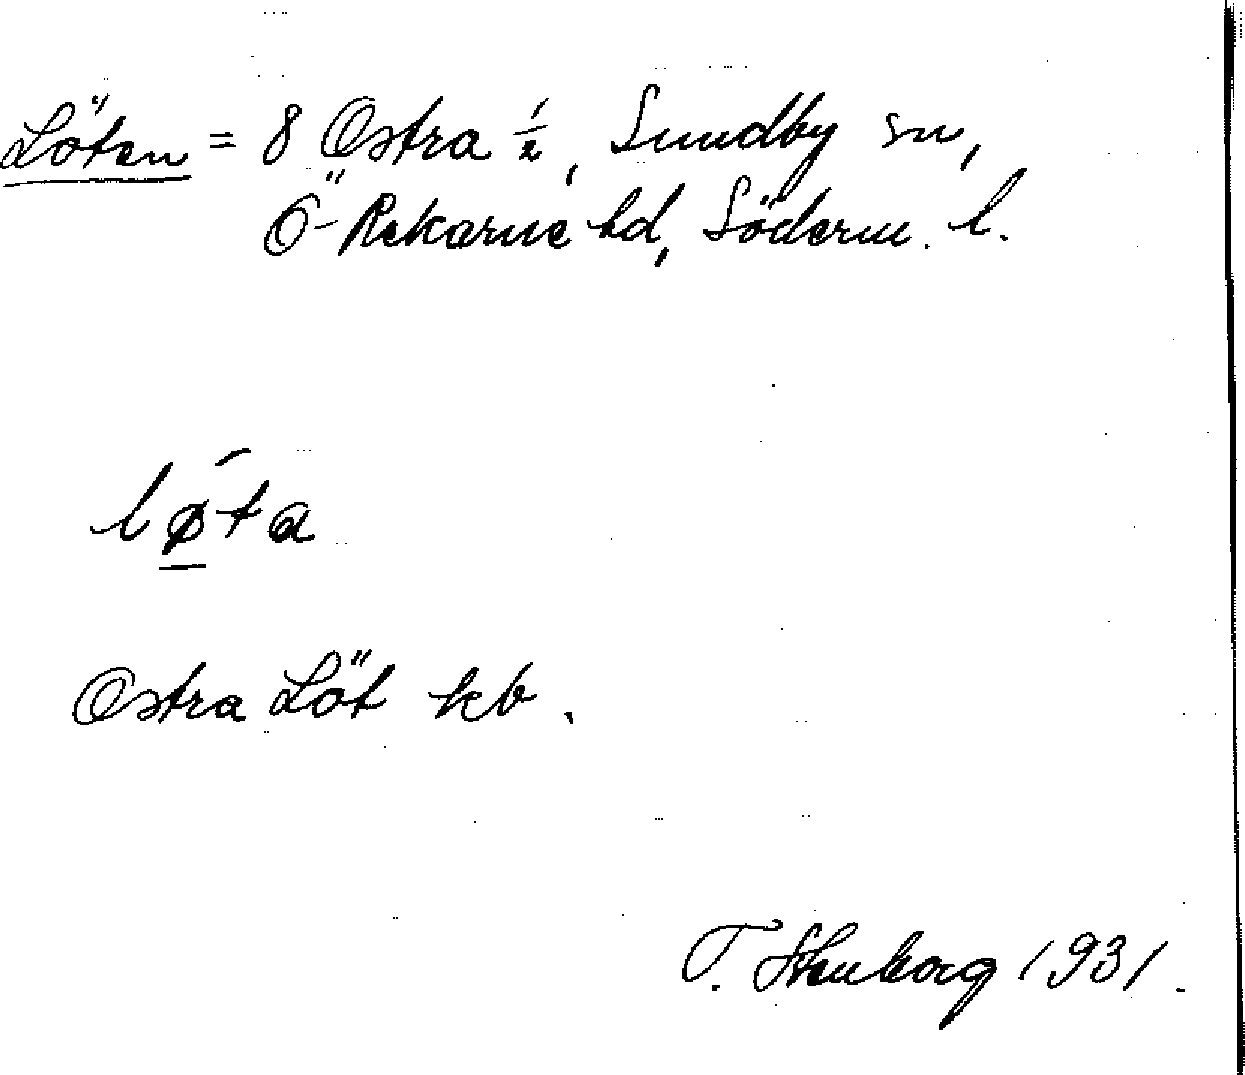 Löten = 8 Östra ½, Sundby sn,
Ö-Rekarne hd, Söderm. l.
lǿta
Östra Löt kb.
T. Stenborg 1931.